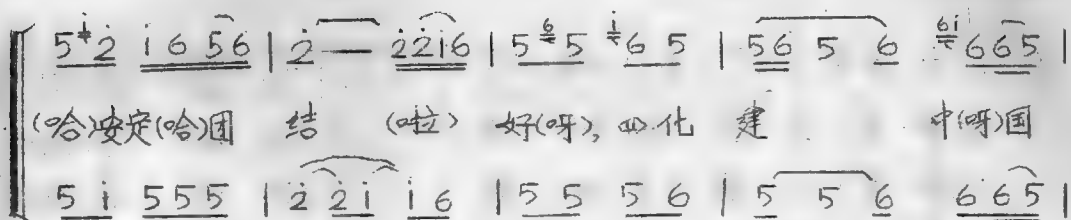 5 i 2̇ i̇ 6 5 6 | 2̇ — 2̇ 2̇ i̇ 6 | 5 6 5 i 6 5 | 5 6 5 6 6i 6 6 5 |
(哈)安定(哈)团 结 (啦) 好(呀), 四化 建 中(呀)国
5 i̇ 5 5 5 | 2̇ 2̇ i̇ i̇ 6 | 5 5 5 6 | 5 5 6 6 6 5 |